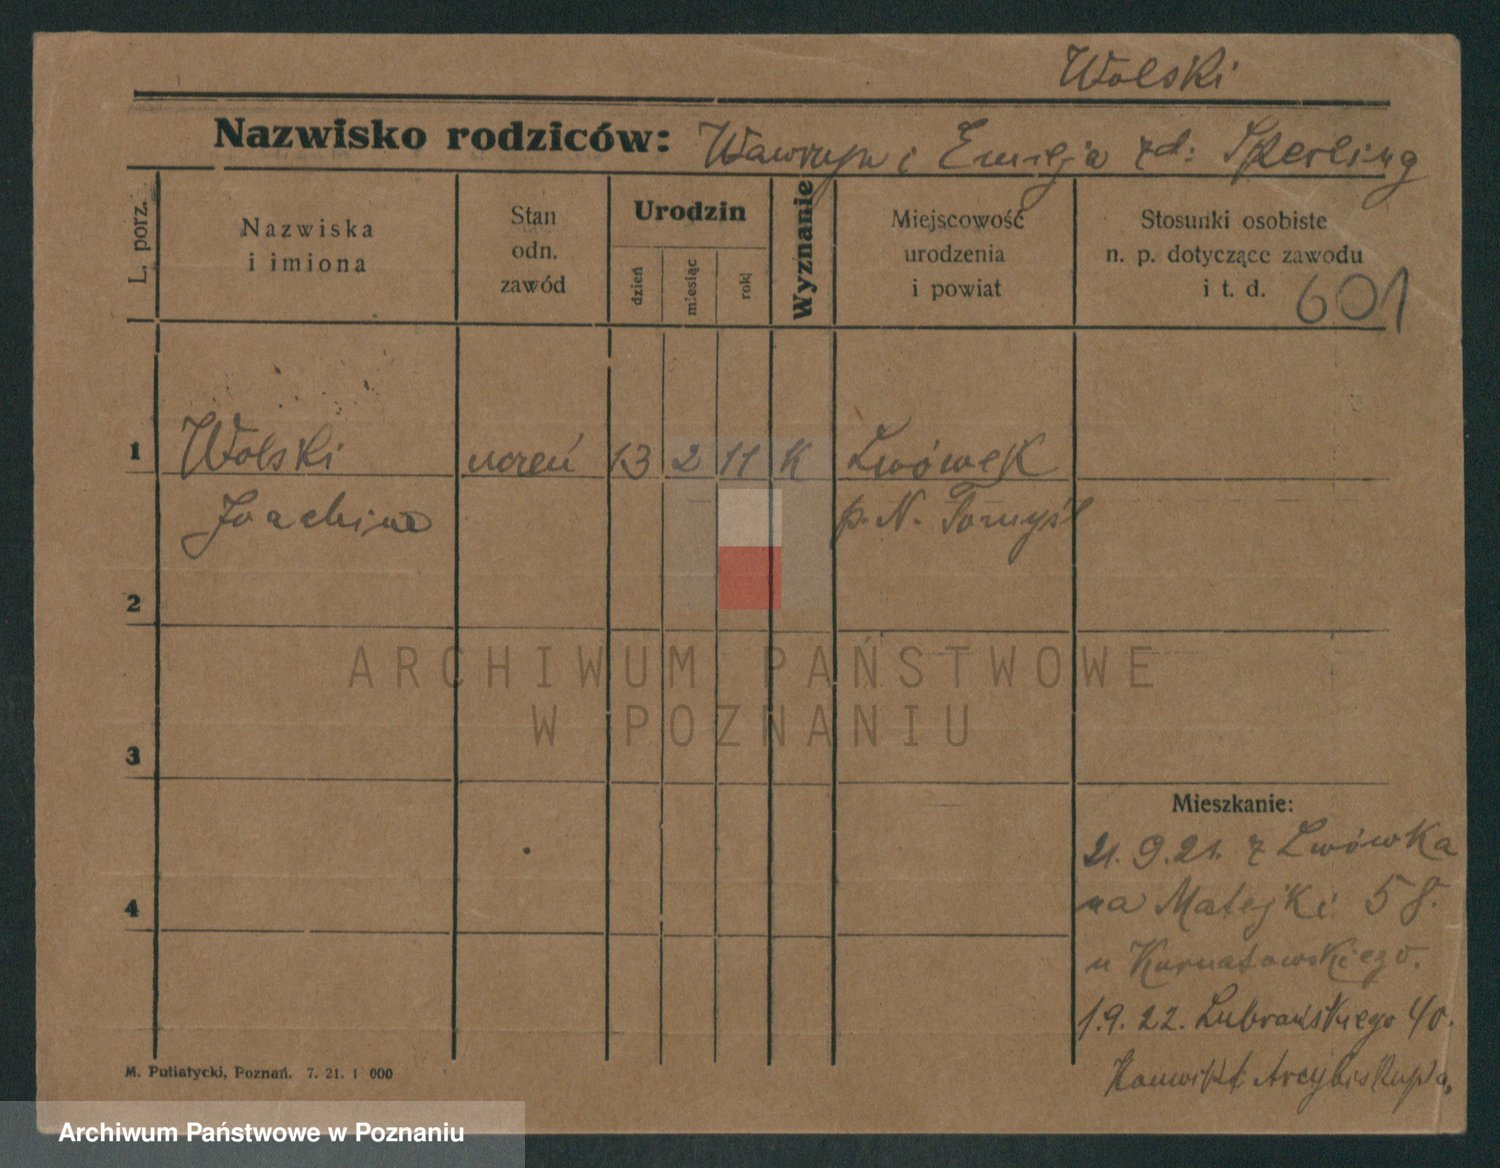 Wolski
Nazwisko rodziców: Wawrzyn i Emilja zd: Sperling
L. porz.
Nazwiska
i imiona
Stan
odn.
zawód
Urodzin
dzień
miesiąc
rok
Wyznanie
Miejscowość
urodzenia
i powiat
Stosunki osobiste
n. p. dotyczące zawodu
i t. d.
601
1 Wolski uczeń 13 2 11 K Lwówek
Joachim p. N. Tomyśl
2
ARCHIWUM PAŃSTWOWE
W POZNANIU
3
Mieszkanie:
21. 9. 21. z Lwówka
na Matejki 58.
4
u Karnatowskiego.
1. 9. 22. Lubrańskiego 40.
Konwikt Arcybiskupi
M. Putiatycki, Poznań. 7. 21. 1 000
Archiwum Państwowe w Poznaniu